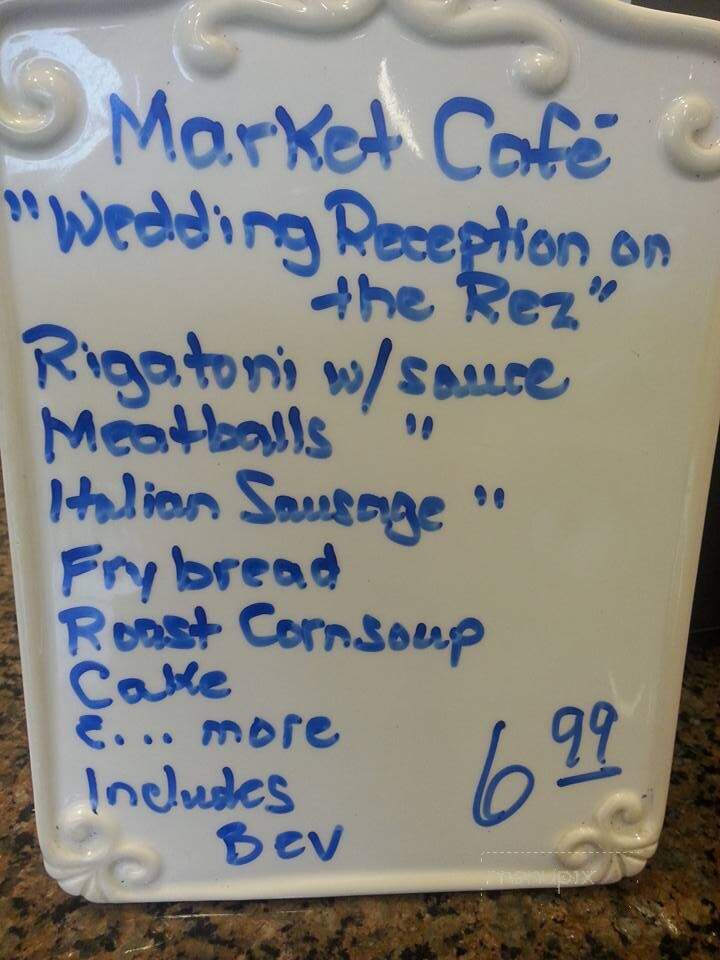 Market Café
"Wedding Reception on
the Rez"
Rigatoni w/ sauce
Meatballs "
Italian Sausage "
Fry bread
Roast Cornsoup
Cake
&... more
Includes
Bev
6 99
menupix